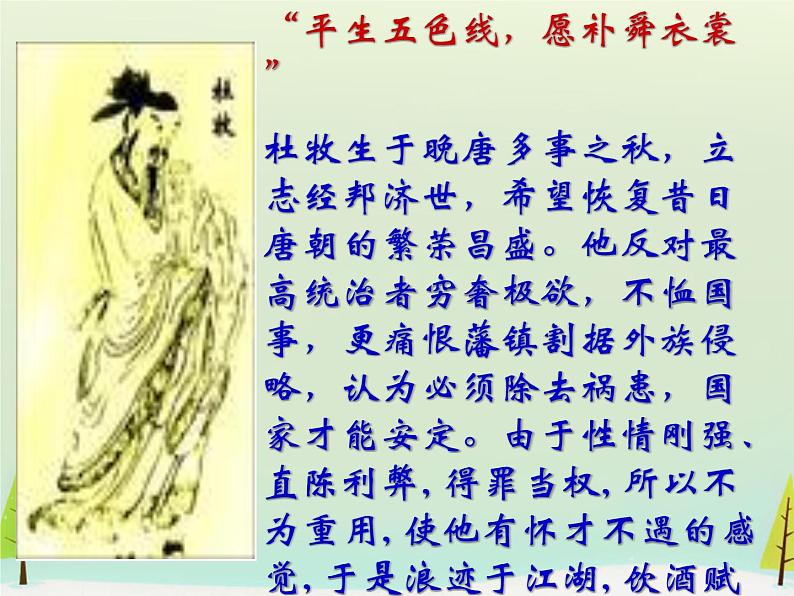 “平生五色线，愿补舜衣裳
”
杜牧
杜牧生于晚唐多事之秋，立
志经邦济世，希望恢复昔日
唐朝的繁荣昌盛。他反对最
高统治者穷奢极欲，不恤国
事，更痛恨藩镇割据外族侵
略，认为必须除去祸患，国
家才能安定。由于性情刚强、
直陈利弊,得罪当权,所以不
为重用,使他有怀才不遇的感
觉,于是浪迹于江湖,饮酒赋